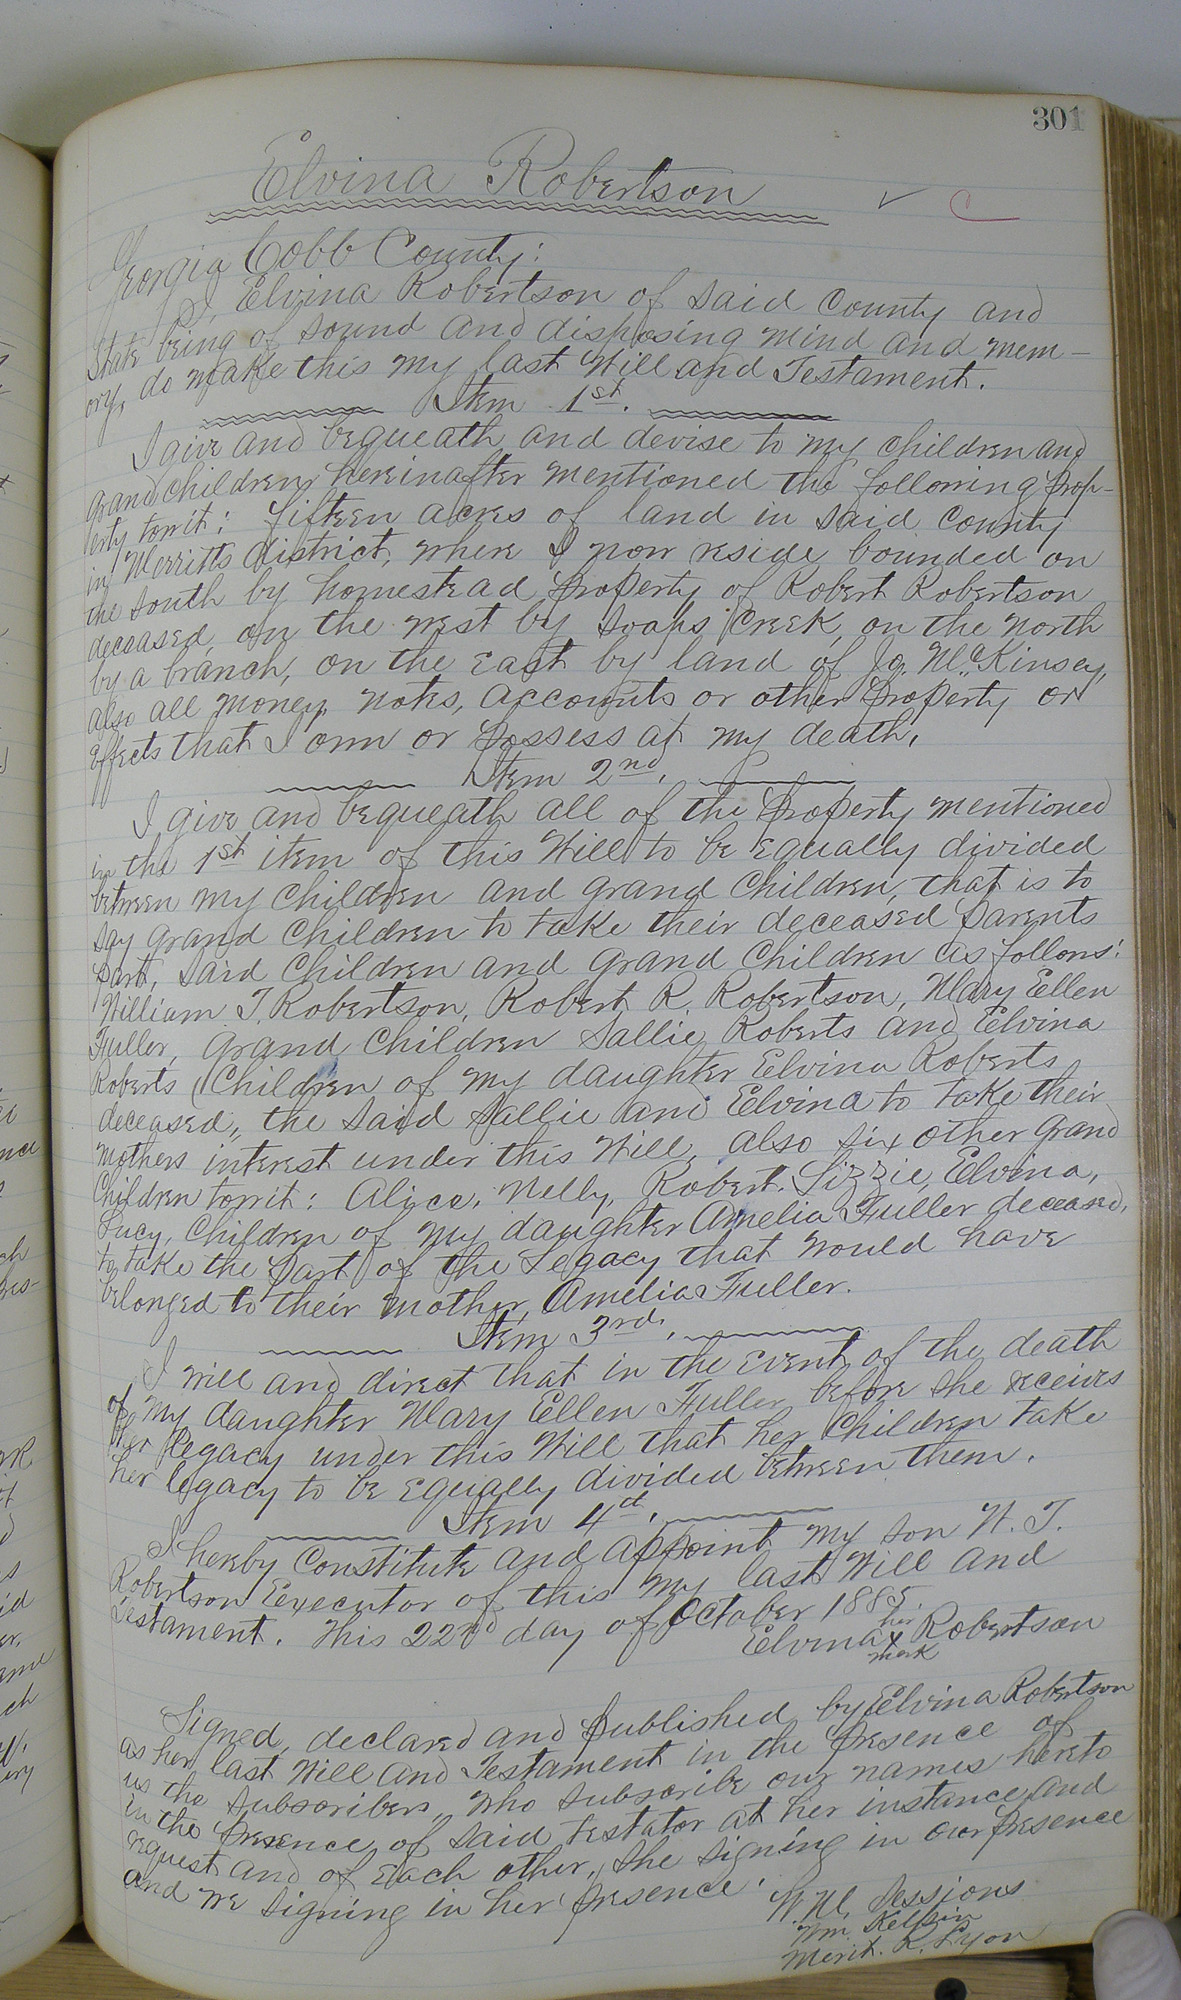 301
Elvina Robertson
Georgia Cobb County:
I, Elvina Robertson of said County and
State being of sound and disposing mind and mem-
ory, do make this my last Will and Testament.
Item 1st.
I give and bequeath and devise to my children and
grandchildren hereinafter mentioned the following prop-
erty towit: fifteen acres of land in said County
in Merritts district, where I now reside bounded on
the south by homestead property of Robert Robertson
deceased, on the west by Soaps Creek, on the north
by a branch, on the East by land of Jq. McKinsey,
also all money, notes, accounts or other property or
effects that I own or possess at my death.
Item 2nd.
I give and bequeath all of the property mentioned
in the 1st item of this Will to be equally divided
between my children and grand children, that is to
say grand children to take their deceased parents
part, said children and grand children as follows:
William T. Robertson, Robert R. Robertson, Mary Ellen
Fuller, grand children Sallie Roberts and Elvina
Roberts (Children of my daughter Elvina Roberts
deceased, the said Sallie and Elvina to take their
mothers interest under this Will, also six other grand
children towit: Alice, Nelly, Robert, Lizzie, Elvina,
Lucy, children of my daughter Amelia Fuller deceased,
to take the part of the Legacy that would have
belonged to their mother, Amelia Fuller.
Item 3rd.
I will and direct that in the event of the death
of my daughter Mary Ellen Fuller before she receives
her legacy under this Will that her children take
her legacy to be equally divided between them.
Item 4th.
I hereby constitute and appoint my son W. T.
Robertson Eexecutor of this my last Will and
Testament. This 22nd day of October 1885.
Elvina her x mark Robertson
Signed, declared and published by Elvina Robertson
as her last Will and Testament in the presence of
us the subscribers, who subscribe our names hereto
in the presence of said testator at her instance and
request and of each other, she signing in our presence
and we signing in her presence.
W. M. Sessions
Wm.
Merit. R. Lyon